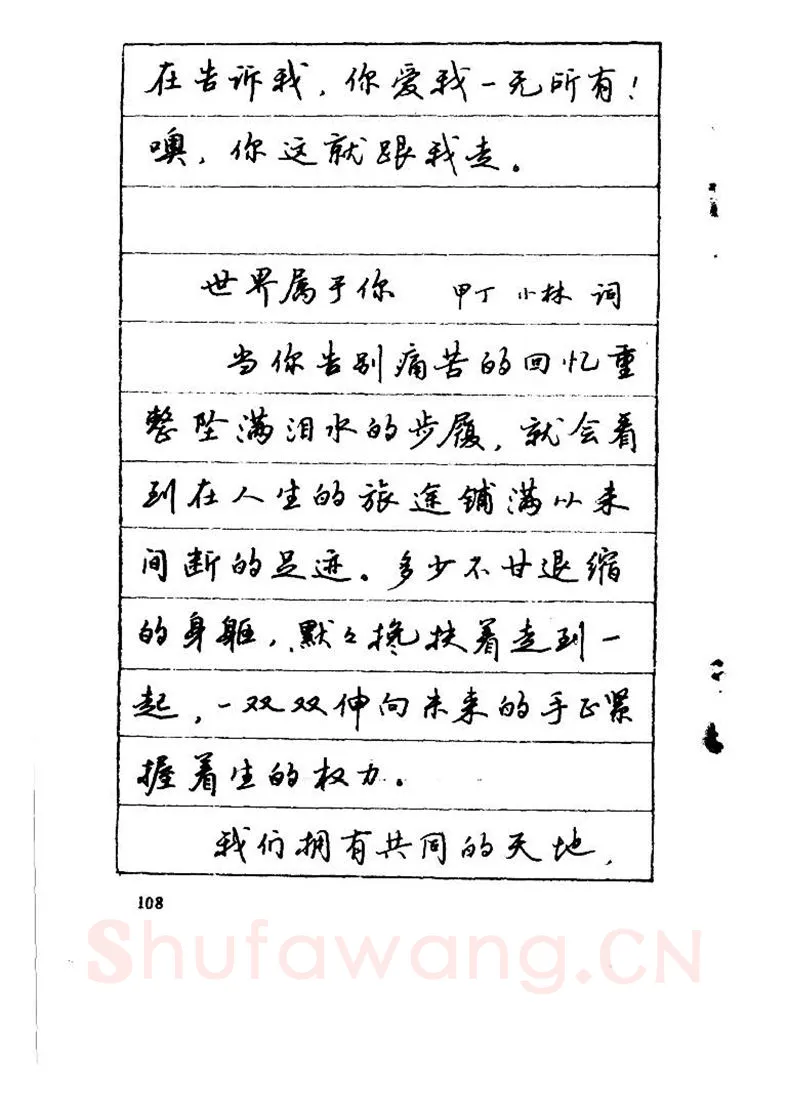 在告诉我，你爱我一无所有！
噢，你这就跟我走。
世界属于你　甲丁 小林 词
当你告别痛苦的回忆重
整坠满泪水的步履，就会看
到在人生的旅途铺满以来
间断的足迹。多少不甘退缩
的身躯，默々搀扶着走到一
起，一双双伸向未来的手正紧
握着生的权力。
我们拥有共同的天地，
108
Shufawang.CN